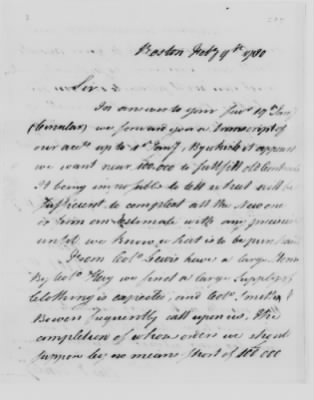 Boston Feby 9th 1780
Sir
In answer to your favr 19th Jany
(Circular) we forward you a transcript of
our accts up to 1st Jany, By which it appears
we want near 100,000 to fullfill old Contracts
It being impossible to tell what will be
sufficient to compleat all the New one
or form an Estimate with any precision
untill we know what is to be purchased
From Colo. Lewis have a large
By Colo. we find a large Supply of
Cloathing is expected, and Colo.
Bowen frequently call upon us, the
completion of whose orders we should
suppose by no means short of 100.000